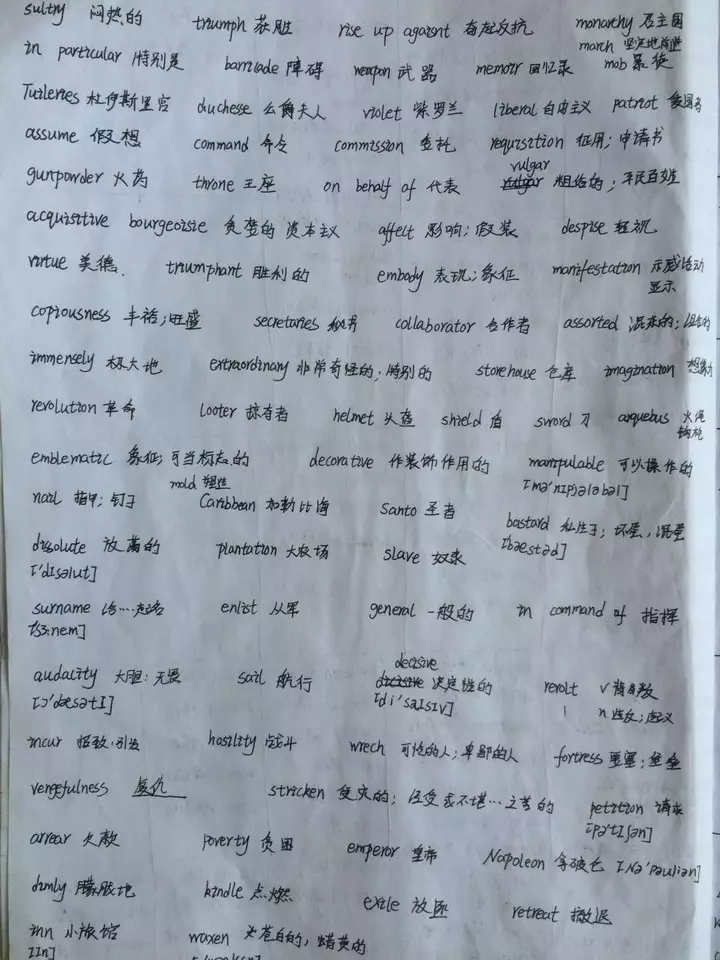 sultry 闷热的 triumph 获胜 rise up against 奋起反抗 monarthy 君主国
march 坚定地前进
in particular 特别是 barrilade 障碍 weapon 武器 memoir 回忆录 mob 暴徒
Tuileries 杜伊斯里宫 duchesse 公爵夫人 violet 紫罗兰 liberal 自由主义 patriot 爱国者
assume 假想 command 命令 commission 委托 requisition 征用；申请书
vulgar
gunpowder 火药 throne 王座 on behalf of 代表 粗俗的；平民百姓
acquisitive bourgeoisie 贪婪的资本主义 affect 影响；假装 despise 轻视
virtue 美德. triumphant 胜利的 embody 表现；象征 manifestation 示威活动
显示
copiousness 丰裕；旺盛 secretaries 秘书 collaborator 合作者 assorted 混杂的；
immensely 极大地 extraordinary 非常奇怪的；特别的 storehouse 仓库 imagination
revolution 革命 looter 掠夺者 helmet 头盔 shield 盾 sword 刀 arquebus 火绳
钩枪
emblematic 象征；可当标志的 decorative 作装饰作用的 manipulable 可以操作的
mold 塑造 [mə'nɪpjələbəl]
nail 指甲；钉子 Caribbean 加勒比海 Santo 圣者 bastard 私生子；坏蛋，混蛋
[bæstəd]
dissolute 放荡的 plantation 大牧场 slave 奴隶
['dɪsəlut]
surname 给…起名 enlist 从军 general 一般的 in command of 指挥
[sɜ:nem]
decisive
audacity 大胆；无畏 sail 航行 决定性的 revolt v 背叛
[ɔ'dæsətɪ] [di'saɪsɪv] n 造反；起义
incur 招致，引发 hosility 战斗 wrech 可怜的人；卑鄙的人 fortress 要塞；堡垒
vengefulness 复仇 stricken 受灾的；经受或不堪…之苦的 petition 请求
[pə'tɪʃən]
arrear 欠款 poverty 贫困 emperor 皇帝 Napoleon 拿破仑 [nə'pəuliən]
dimly 朦胧地 kindle 点燃 exile 放逐 retreat 撤退
inn 小旅馆 waxen 苍白的，蜡黄的
[ɪn]